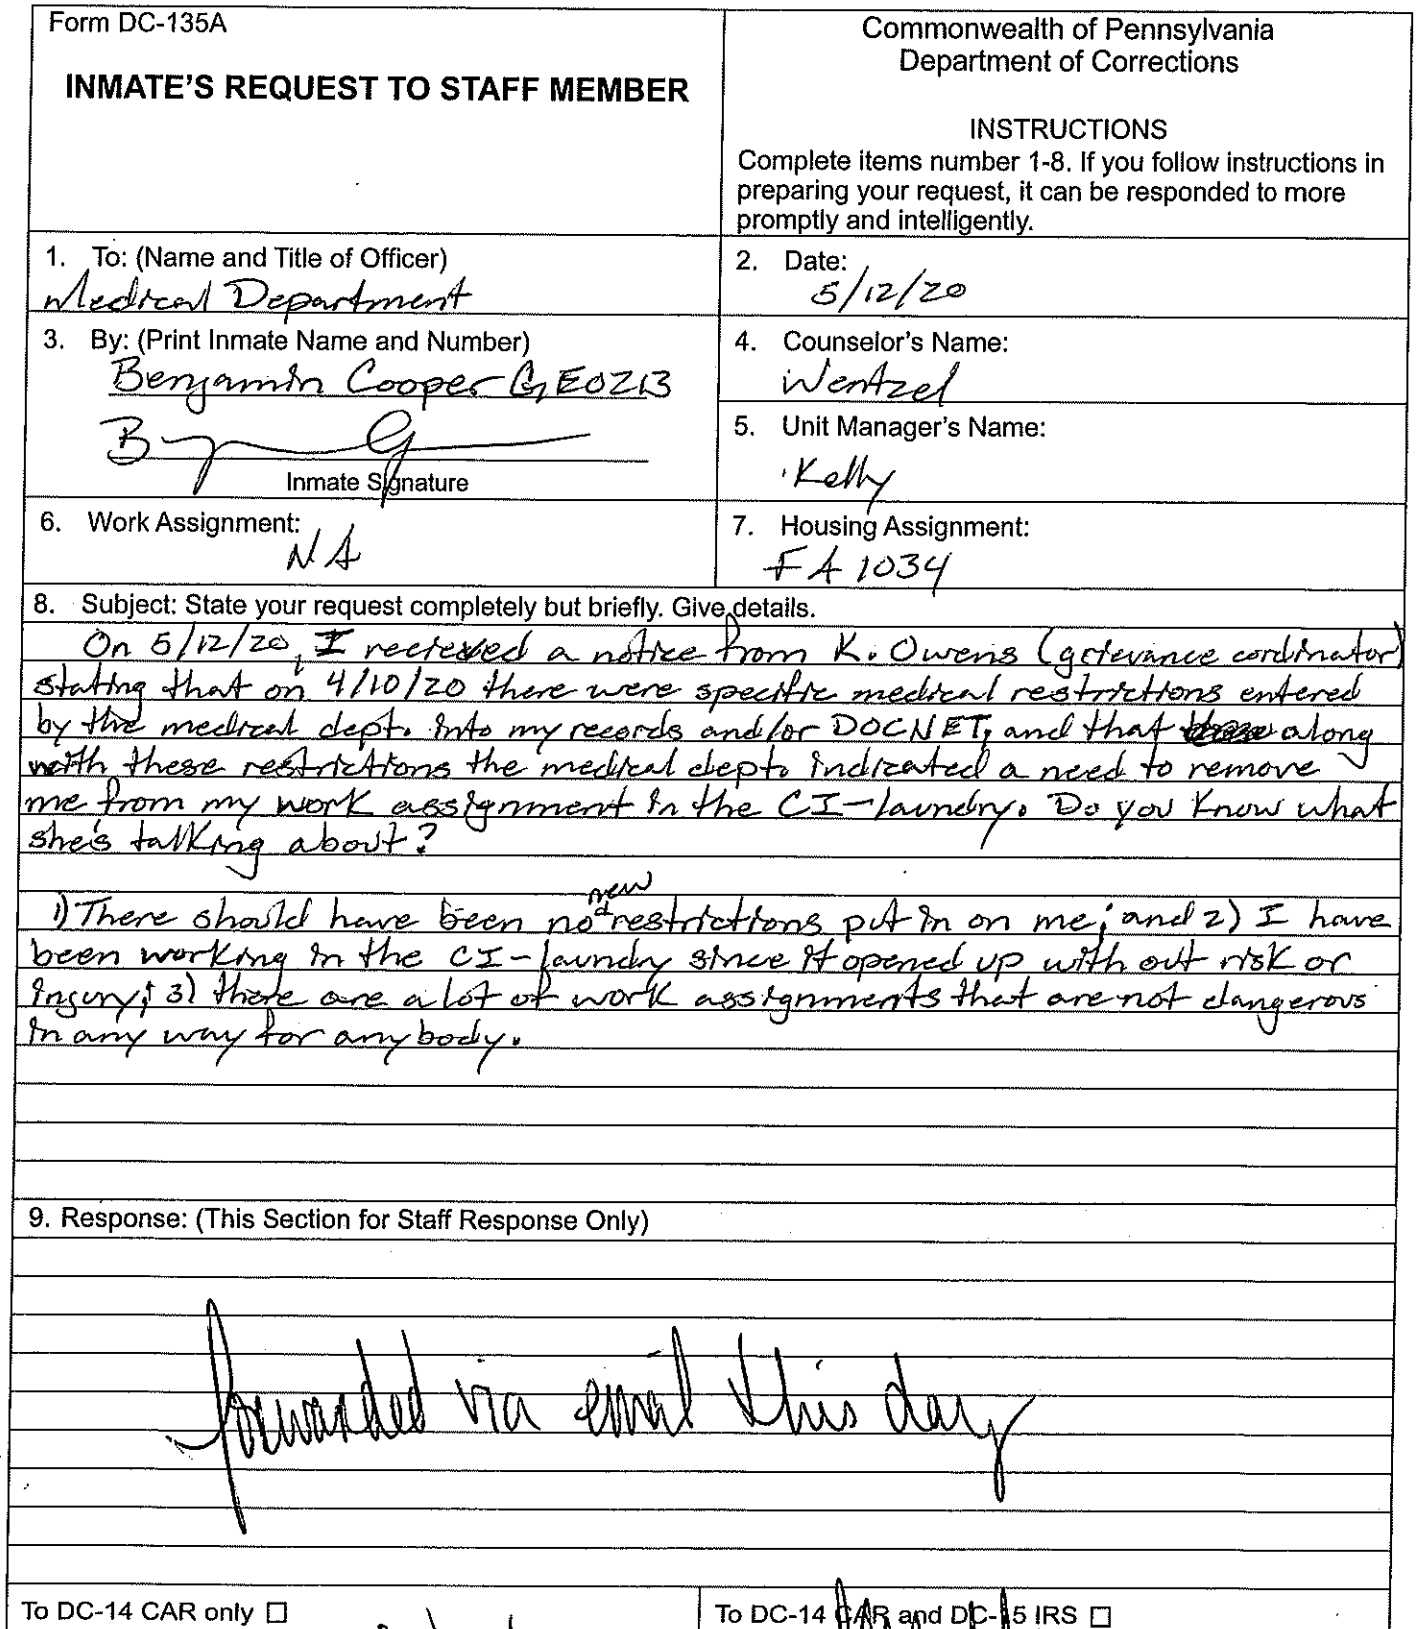 Form DC-135A
INMATE'S REQUEST TO STAFF MEMBER
Commonwealth of Pennsylvania
Department of Corrections
INSTRUCTIONS
Complete items number 1-8. If you follow instructions in
preparing your request, it can be responded to more
promptly and intelligently.
1. To: (Name and Title of Officer)
Medical Department
2. Date:
5/12/20
3. By: (Print Inmate Name and Number)
Benjamin Cooper GE0213
Inmate Signature
4. Counselor's Name:
Wentzel
5. Unit Manager's Name:
Kelly
6. Work Assignment:
NA
7. Housing Assignment:
FA 1034
8. Subject: State your request completely but briefly. Give details.
On 5/12/20, I recieved a notice from K. Owens (grievance cordinator)
stating that on 4/10/20 there were specific medical restrictions entered
by the medical dept. into my records and/or DOCNET, and that along
with these restrictions the medical dept. indicated a need to remove
me from my work assignment in the CI-laundry. Do you know what
she's talking about?
new
1) There should have been no restrictions put in on me; and 2) I have
been working in the CI-laundry since it opened up with out risk or
injury; 3) there are a lot of work assignments that are not dangerous
in any way for anybody.
9. Response: (This Section for Staff Response Only)
forwarded via email this day
To DC-14 CAR only ☐
To DC-14 CAR and DC-15 IRS ☐